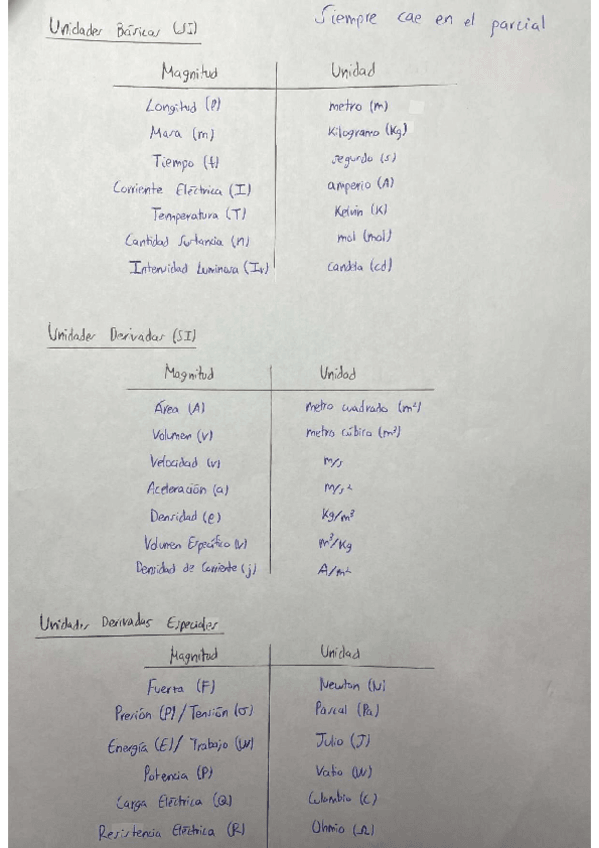 Siempre cae en el parcial
Unidades Básicas (SI)
Magnitud Unidad
Longitud (l) metro (m)
Masa (m) Kilogramo (Kg)
Tiempo (t) segundo (s)
Corriente Eléctrica (I) amperio (A)
Temperatura (T) Kelvin (K)
Cantidad Sustancia (n) mol (mol)
Intensidad Luminosa (Iv) candela (cd)
Unidades Derivadas (SI)
Magnitud Unidad
Área (A) metro cuadrado (m²)
Volumen (v) metro cúbico (m³)
Velocidad (v) m/s
Aceleración (a) m/s²
Densidad (ρ) Kg/m³
Volumen Específico (v) m³/Kg
Densidad de Corriente (j) A/m²
Unidades Derivadas Especiales
Magnitud Unidad
Fuerza (F) Newton (N)
Presión (P) / Tensión (σ) Pascal (Pa)
Energía (E) / Trabajo (W) Julio (J)
Potencia (P) Vatio (W)
Carga Eléctrica (Q) Culombio (C)
Resistencia Eléctrica (R) Ohmio (Ω)